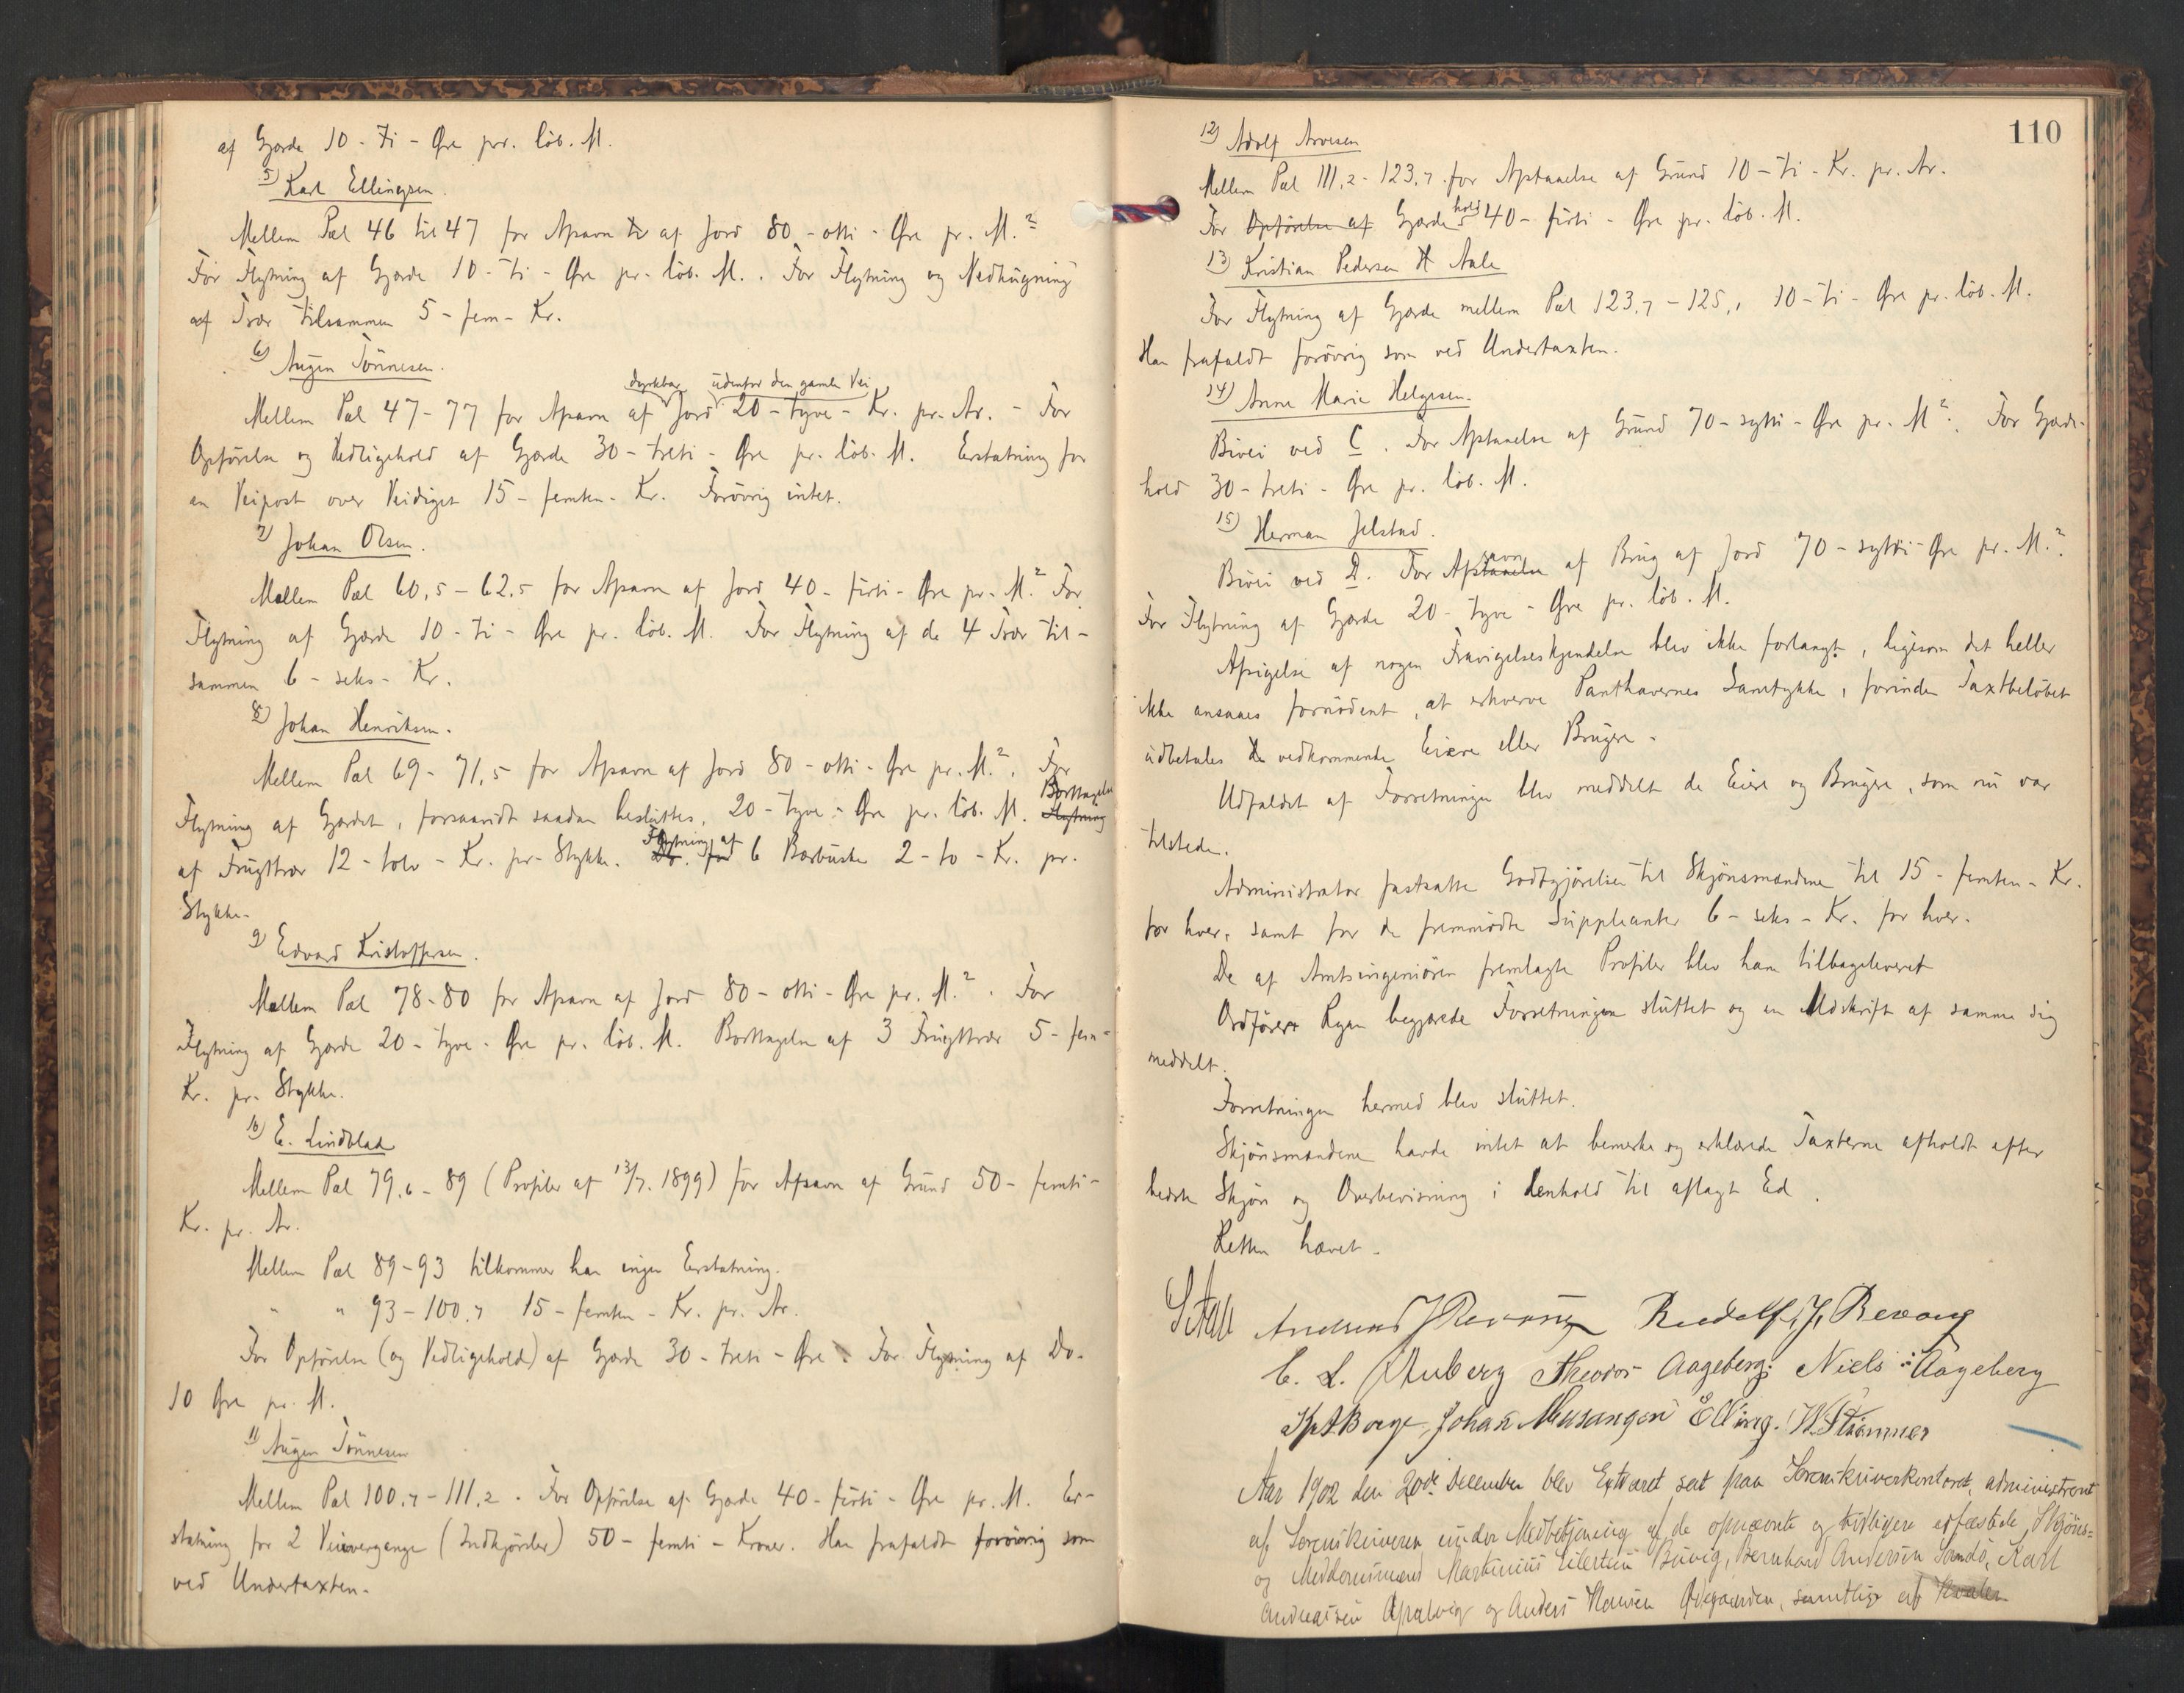 af Gjærde 10 - ti - Øre pr. løb. M.
5) Karl Ellingsen.
Mellem Pæl 46 til 47 for Afsavn af Jord 80 - otti - Øre pr. M.²
For Flytning af Gjærde 10 - ti - Øre pr. løb. M. . For Flytning og Nedhugning
af Trær tilsammen 5 - fem - Kr.
6) Augen Tønnesen.
Mellem Pæl 47-77 for Afsavn af dyrkbar Jord udenfor den gamle Vei 20 - tyve - Kr. pr. Ar. - For
Opførelse og Vedligehold af Gjærde 30 - treti - Øre pr. løb. M. Erstatning for
en Veipost over Veidiget 15 - femten - Kr. Forøvrig intet.
7) Johan Olsen.
Mellem Pæl 60,5 - 62,5 for Afsavn af Jord 40 - firti - Øre pr. M.² For
Flytning af Gjærde 10 - ti - Øre pr. løb. M. For Flytning af de 4 Trær til-
sammen 6 - seks - Kr.
8) Johan Henriksen.
Mellem Pæl 69 - 71,5 for Afsavn af Jord 80 - otti - Øre pr. M.². For
Flytning af Gjærdet, forsaavidt saadan besluttes, 20 - tyve - Øre pr. løb. M. Flytning Borttagelse
af Frugttrær 12 - tolv - Kr. pr. Stykke. Flytning af 6 Bærbuske 2 - to - Kr. pr.
Stykke.
9) Edvard Kristoffersen.
Mellem Pæl 78-80 for Afsavn af Jord 80 - otti - Øre pr. M.² . For
Flytning af Gjærde 20 - tyve - Øre pr. løb. M. Borttagelse af 3 Frugttrær 5 - fem -
Kr. pr. Stykke.
10) E. Lindblad
Mellem Pæl 79,6 - 89 (Profiler af 13/7. 1899) for Afsavn af Grund 50 - femti -
Kr. pr. Ar.
Mellem Pæl 89-93 tilkommer han ingen Erstatning.
" " 93-100,7 15 - femten - Kr. pr. Ar.
For Opførelse (og Vedligehold) af Gjærde 30 - treti - Øre. For Flytning af Do.
10 Øre pr. M.
11) Augen Tønnesen
Mellem Pæl 100,7 - 111,2 . For Opførelse af Gjærde 40 - firti - Øre pr. M. Er-
statning for 2 Veiovergange (Indkjørsler) 50 - femti - Kroner. Han frafaldt forøvrig som
ved Undertaxten.
110
12) Adolf Arvesen
Mellem Pæl 111,2 - 123,7 for Afstaaelse af Grund 10 - ti - Kr. pr. Ar.
For Opførelse af Gjærdehold 40 - firti - Øre pr. løb. M.
13) Kristian Pedersen Aale
For Flytning af Gjærde mellem Pæl 123,7 - 125,1 10 - ti - Øre pr. løb. M.
Han frafaldt forøvrig som ved Undertaxten.
14) Anne Marie Helgesen.
Bivei ved C. For Afstaaelse af Grund 70 - sytti - Øre pr. M². For Gjærde-
hold 30 - treti - Øre pr. løb. M.
15) Herman Jelstad.
Bivei ved D. For Afsavn af Brug af Jord 70 - sytti - Øre pr. M.².
For Flytning af Gjærde 20 - tyve - Øre pr. løb. M.
Afsigelse af nogen Fravigelseskjendelse blev ikke forlangt, ligesom det heller
ikke ansaaes fornødent, at erhverve Panthavernes Samtykke, forinden Taxtbeløbet
udbetales vedkommende Eiere eller Brugere.
Udfaldet af Forretningen blev meddelt de Eiere og Brugere, som nu var
tilstede.
Administrator fastsatte Godtgjørelsen til Skjønsmændene til 15 - femten - Kr.
for hver, samt for de fremmødte Suppleanter 6 - seks - Kr. for hver.
De af Amtsingeniøren fremlagte Profiler blev ham tilbageleveret
Ordfører Ryen begjærede Forretningen sluttet og en Udskrift af samme sig
meddelt.
Forretningen hermed blev sluttet.
Skjønsmændene havde intet at bemerke og erklærede Taxterne afholdt efter
bedste Skjøn og Overbevisning i Henhold til aflagt Ed .
Retten hævet.
Andreas J Revaug Rudolf, J, Revaug
C. L. Auberg Theodor Aageberg. Niels Aageberg
Johan Musangen Elling. W. Strømmer
Aar 1902 den 20de December blev Extraret sat paa Sorenskriverkontoret, administreret
af Sorenskriveren under Medbetjening af de opnævnte og tidligere edfæstede Skjøns-
og Meddomsmænd Martinius Eilertsen Buvig, Bernhard Andersen Sandø, Karl
Andreassen Apalvig og Anders Hansen Ødegaarden, samtlige af Hvaler